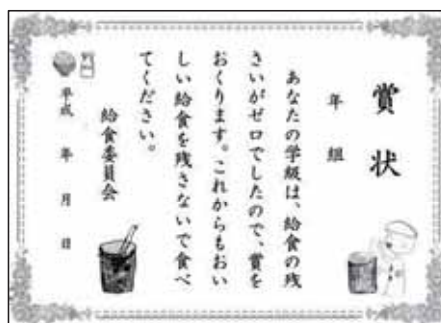 賞状
年 組
あなたの学級は、給食の残
さいがゼロでしたので、賞を
おくります。これからもおい
しい給食を残さないで食べ
てください。
給食委員会
平成 年 月 日